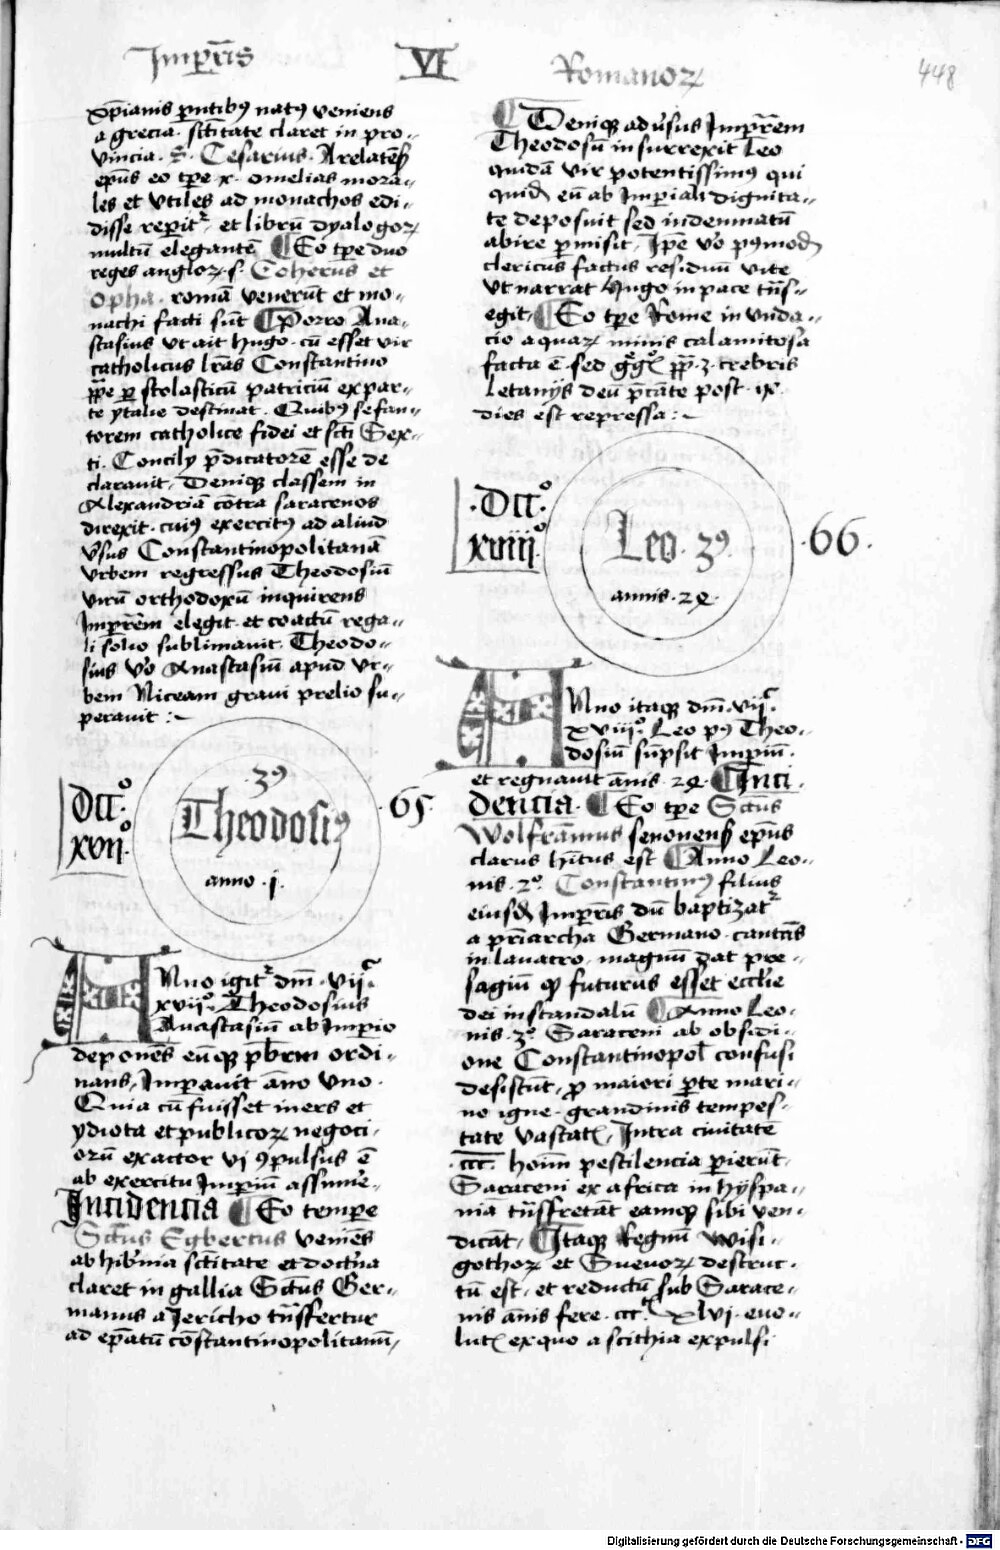 Imp̄ris VI Romanoꝝ
448
xp̄ianis pn̄tibꝰ natꝰ veniens
a grecia · sc̄titate claret in pro-
vincia · S · Cesarius · Arelateñ
ep̄us eo tp̄e x · omelias mora-
les et vtiles ad monachos edi-
disse reperitʳ · et librū dyalogoꝝ
multū elegantē ¶ Eo tp̄e duo
reges angloꝝ · s · Coherus et
Opha · romā venerūt et mo-
nachi facti sūt ¶ Porro Ana-
stasius vt ait hugo · cū esset vir
catholicus lr̄as Constantino
pp̄e ꝑ scolasticū patriciū ex par-
te ytalie destinat · Quibꝰ se fau-
torem catholice fidei et sc̄ti Sex-
ti · Concilij p̄dicatorē esse de
clarauit · Deniqꝫ classem in
Alexandriā cōtra saracenos
direxit · cuiꝰ exercitꝰ ad aliud
v̓sus Constantinopolitanā
vrbem regressus Theodosiū
virū orthodoxū inquirens
Imp̄rem elegit · et coactū rega-
li solio sublimauit · Theodo-
sius v̓o Anastasiū apud vr-
bem Niceam graui prelio su-
perauit :~
Dcc°.
xvii°.
3ꝰ
Theodosiꝰ
anno · j ·
· 65 ·
Anno igitʳ dm̄ · vijᶜ
xvij° · Theodosius
Anastasiū ab Imperio
deponēs eūqꝫ pb̄rm ordi-
nans, Imperauit āno vno ·
Quia cū fuisset iners et
ydiota et publicoꝝ negoci-
orū exactor vi ꝯpulsus ē
ab exercitu Imperiū assumē-
Incidencia ¶ Eo tempere
Sctūs Egbertus veniēs
ab hib̓nia sc̄titate et doctʳina
claret in gallia Sctūs Ger-
manus a Jericho trāsfertur
ad ep̄atū cōstantinopolitanū,
¶ Deniqꝫ ad v̓sus Imp̄rem
Theodosiū insurrexit Leo
quidā vir potentissimꝰ qui
quidē eū ab Imperiali dignita-
te deposuit sed indemnatū
abire permisit, Ip̄e v̓o pꝰmodū
clericus factus residuū vite
vt narrat hugo in pace trās-
egit, ¶ Eo tp̄e Rome in vnda-
cio aquaꝝ nimis calamitosa
facta ē · sed gͬgͬ pp̄ · 3 · crebris
letanijs deū p̄cāte post · ix ·
dies est repressa :~
· Dcc°.
xviiii°.
Leo · 3ꝰ.
annis · 24 ·
· 66 ·
Anno itaqꝫ dm̄ · vijᶜ.
xviij° · Leo pꝰ Theo-
dosiū sūpsit Imperiū ·
et regnauit ānis · 24 · ¶ Inci
dencia · ¶ Eo tp̄e Sctūs
Wolframnus senonensis ep̄us
clarus hītus est ¶ Anno Leo-
nis · 2° · Constantinꝰ filius
eiusdē Imp̄ris dū baptizatʳ
a pr̄iarcha Germano · cantās
in lauacro · magnū dat pre-
sagiū qꝫ futurus esset eccl̄ie
dei in scandalū ¶ Anno Leo-
nis · 3° · Saraceni ab obsidi-
one Constantinopol̄ confusi
desistūt, ꝓ maiori parte mari-
no igne · grandinis tempes-
tate vastati, Intra ciuitatē
· ccc · hoīm pestilencia perierūt,
Saraceni ex africa in hyspa-
niā trāsfretāt eamqꝫ sibi ven-
dicāt, ¶ Itaqꝫ Regnū wisi-
gothoꝝ et Sueuoꝝ destruc-
tū est · et reductū sub Sarace-
nis ānis fere · cccᵗ xlvi · euo-
lutis ex quo a scithia expulsi
Digitalisierung gefördert durch die Deutsche Forschungsgemeinschaft - DFG